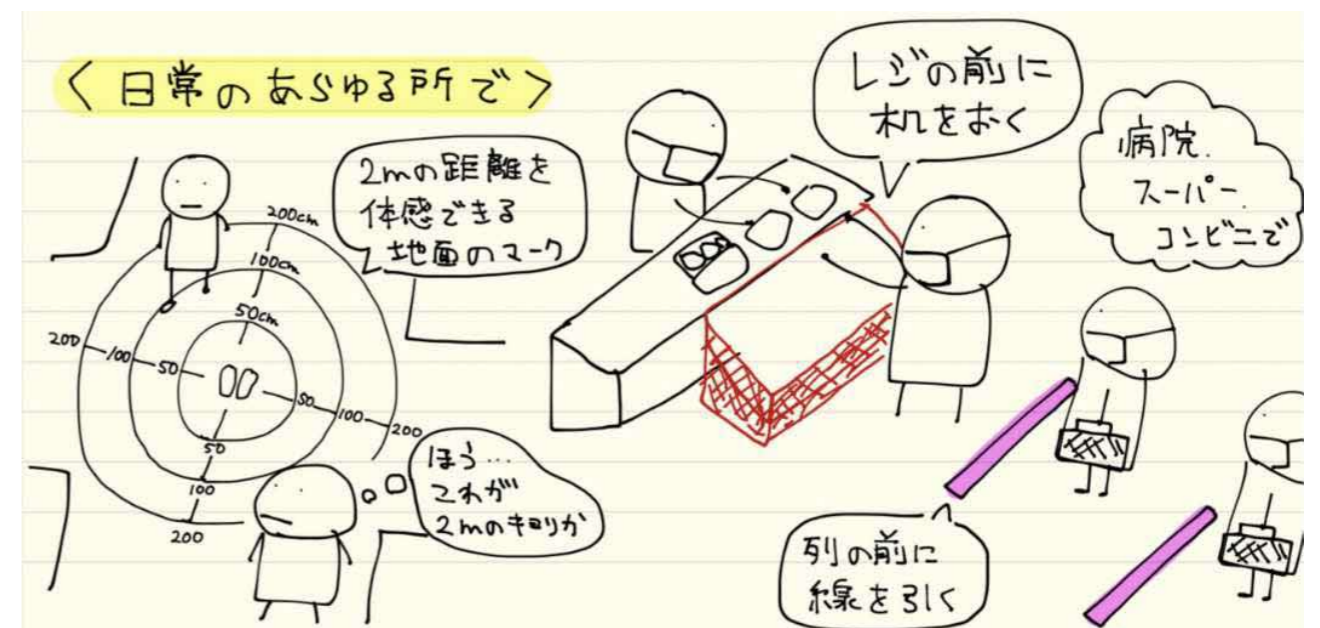 <日常のあらゆる所で>
2mの距離を
体感できる
地面のマーク
200cm
100cm
50cm
200
100
50
50
100
200
50
100
200
ほう…
これが
2mのキョリか
レジの前に
机をおく
病院.
スーパー.
コンビニで
列の前に
線を引く